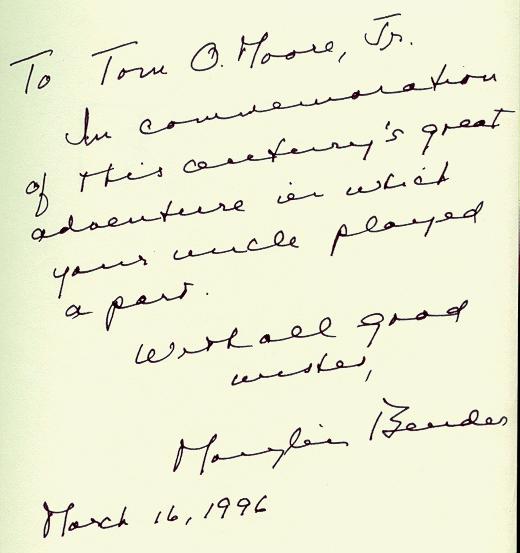 To Tom O. Moore, Jr.
In commemoration
of this century's great
adventure in which
your uncle played
a part.
With all good
wishes,
Marylin Bender
March 16, 1996